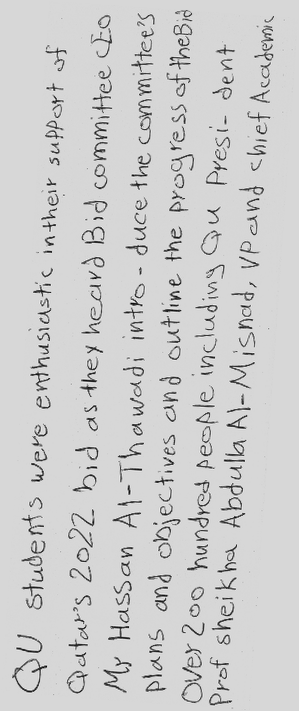 QU students were enthusiastic in their support of
Qatar's 2022 bid as they heard Bid committee CEO
Mr Hassan Al-Thawadi intro- duce the committee's
plans and objectives and outline the progress of the Bid
Over 200 hundred people including QU Presi- dent
Prof sheikha Abdulla Al-Misnad, VP and chief Academic